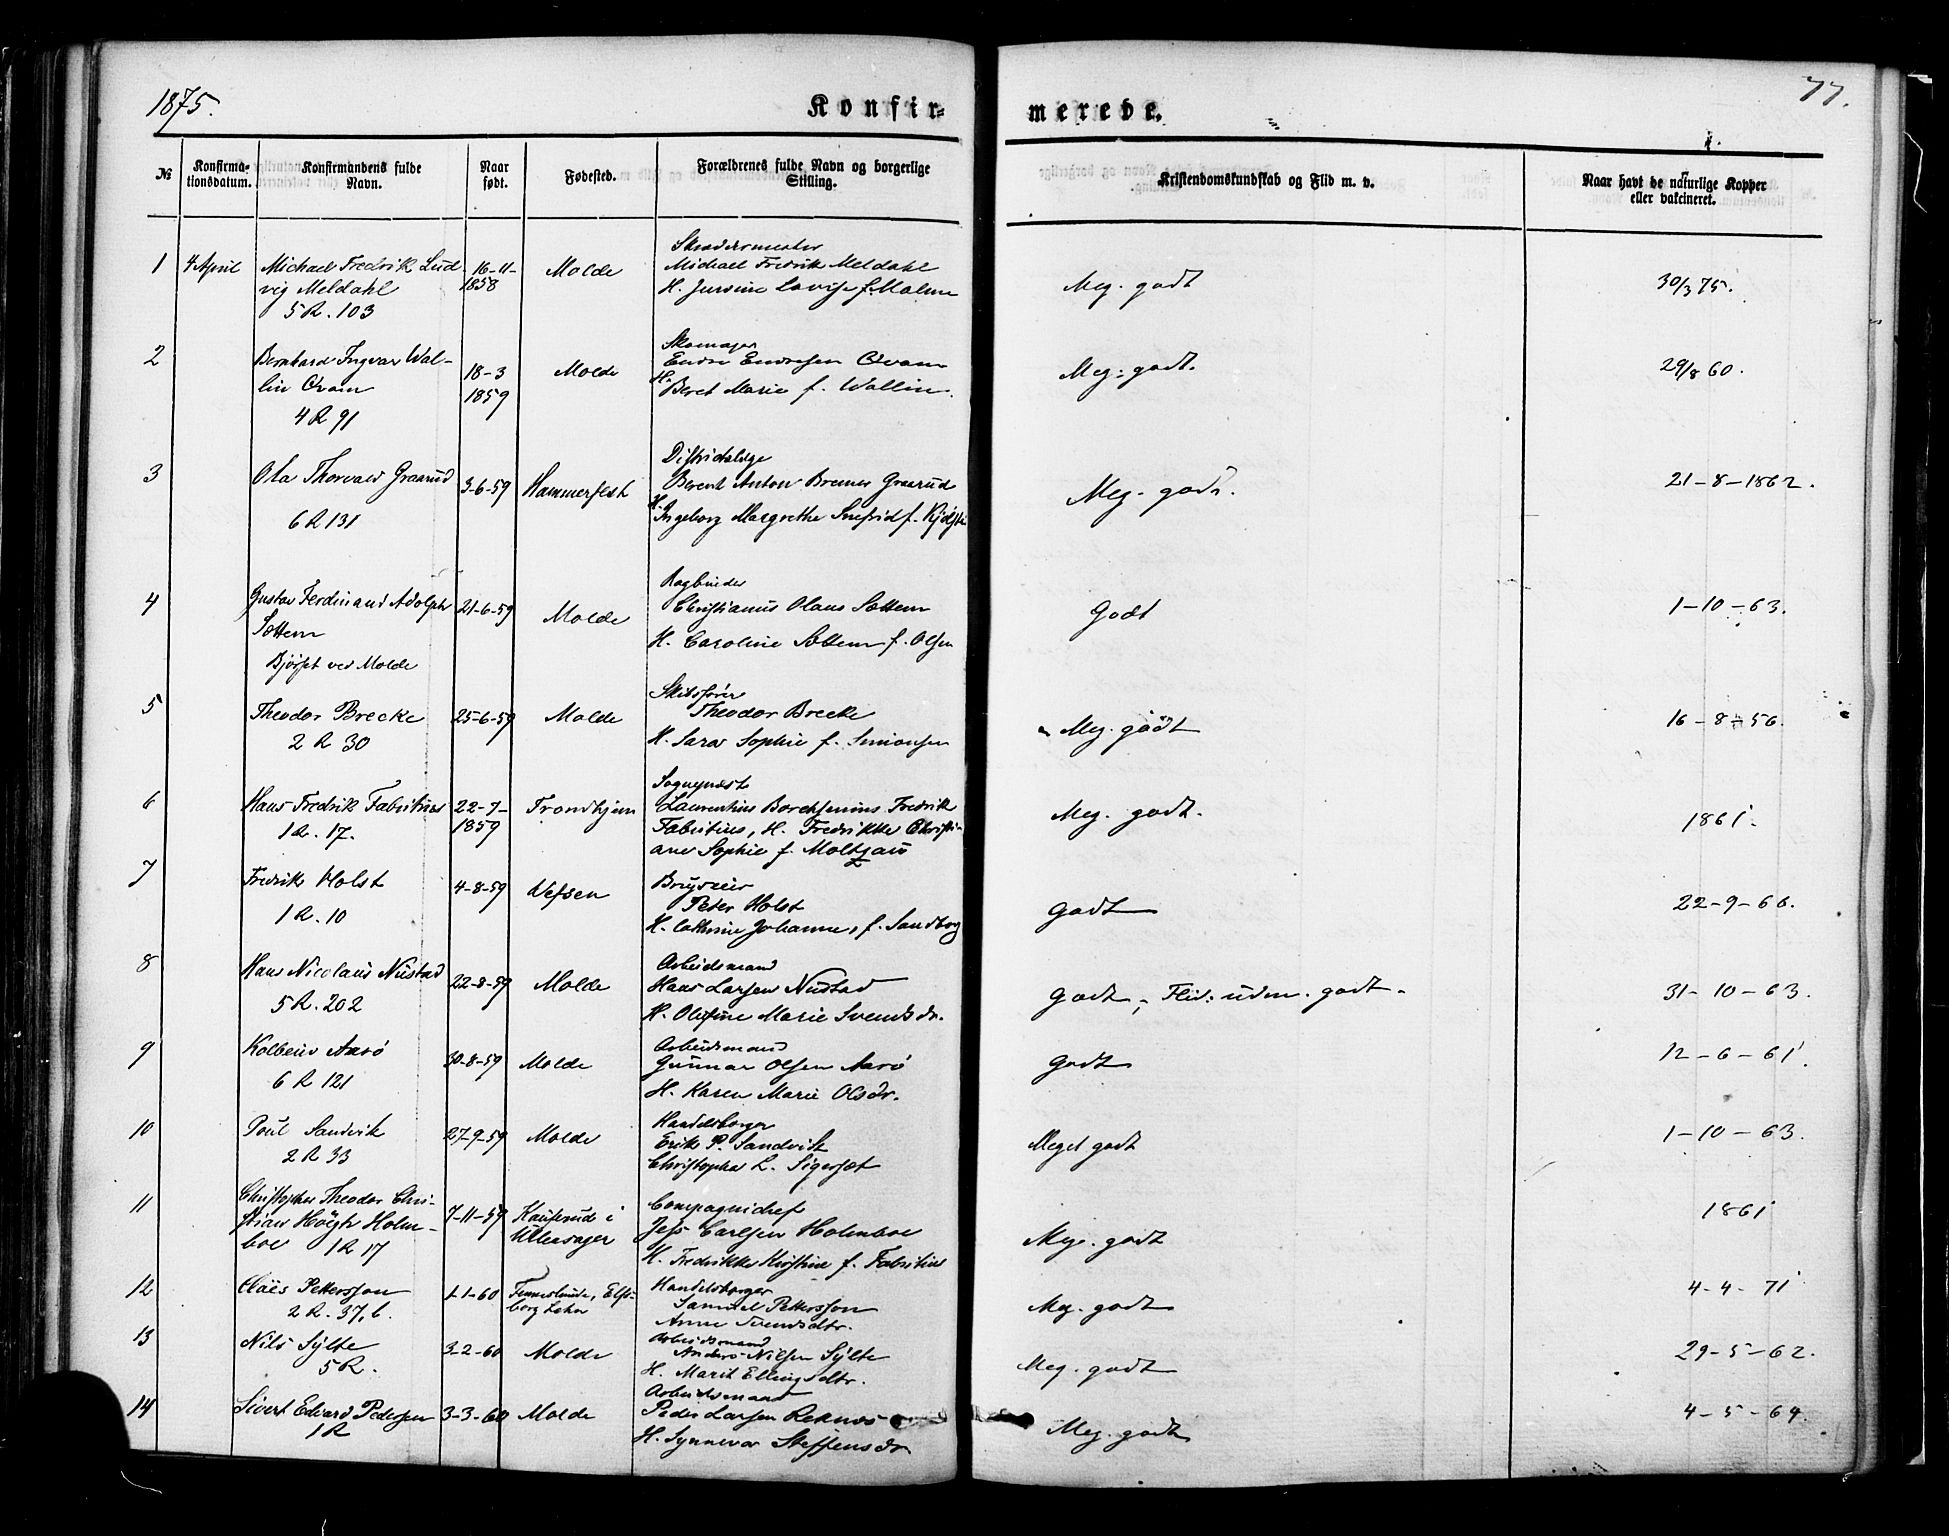 1875.
77.
Konfir-
merede.
№
Konfirma-
tionsdatum.
Konfirmandens fulde
Navn.
Naar
født.
Fødested.
Forældrenes fulde Navn og borgerlige
Stilling.
Kristendomskundskab og Flid m. v.
Naar havt de naturlige Kopper
eller vakcineret.
1 4 April Michael Fredrik Lud- 16-11- Molde Skrædermester
vig Meldahl 1858 Michael Fredrik Meldahl Meg. godt 30/3 75.
5 R. 103 H. Lovise f. Malme
2 Bernhard Ingvar Wal- 18-3 Molde Skomager
lin Qvam 1859 Endre Endresen Qvam Meg: godt. 29/8 60.
4 R 91 H. Beret Marie f. Wallin.
3 Ola Thorvald Graarud 3-6-59 Hammerfest Distriktslæge
6 R 131 Berent Anton Bremer Graarud Meg. godt. 21-8-1862.
H. Ingeborg Margrethe f.
4 Gustav Ferdinand Adolph 21-6-59 Molde Bogbinder
Sættem Christianus Olaus Sættem Godt 1-10-63.
Bjørset ved Molde H. Caroline Sættem f. Olsen
5 Theodor Brecke 25-6-59 Molde Skibsfører
2 R 30 Theodor Brecke Meg. godt 16-8-56.
H. Sara Sophie f. Simonsen
6 Hans Fredrik Fabritius 22-7- Trondhjem Sognepræst
1 R. 17. 1859 Laurentius Borchsenius Fredrik Meg. godt. 1861.
Fabritius, H. Fredrikke Christi-
ane Sophie f. Moltzau
7 Fredrik Holst 4-8-59 Vefsen
1 R. 10 Peter Holst godt 22-9-66.
H. Cathrine Johanne, f. Sandborg
8 Hans Nicolaus Nustad 22-8-59 Molde Arbeidsmand
5 R. 202 Hans Larsen Nustad Godt, Flid: udm. godt. 31-10-63.
H. Olufine Marie Svendsdr.
9 Kolbein Aarø 30-8-59 Molde Arbeidsmand
6 R 121 Gunnar Olsen Aarø godt 12-6-61.
H. Karen Marie Olsdr.
10 Poul Sandvik 27-9-59 Molde Handelsborger
2 R 33 Erik P. Sandvik Meget godt 1-10-63.
Christopha L. Sigerset
11 Christopher Theodor Chri- 7-11-59 i Compagnichef
stian Høegh Holm- Ullensager Jess Carlsen Holmboe Meg. godt 1861
boe 1 R 17 H. Fredrikke Kirstine f. Fabritius
12 Claës Pettersson 1-1-60 Elfs- Handelsborger
2 R. 37, b. borg Lehn Samuel Pettersson Meg. godt 4-4-71
Anne Svendsdtr.
13 Nils Sylte 3-2-60 Molde Arbeidsmand
5 R. Anders Nilsen Sylte Meg. godt 29-5-62.
H. Marit Ellingsdtr.
14 Sivert Edvard Pedersen 3-3-60 Molde Arbeidsmand
1 R Peder Larsen Reknes Meg. godt 4-5-64.
H. Synneva Steffensdr